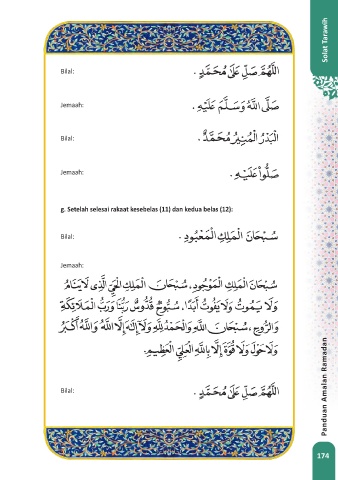 Solat Tarawih
Bilal: اَللّٰهُمَّ صَلِّ عَلَىٰ مُحَمَّدٍ .
Jemaah: صَلَّى اللّٰهُ وَسَلَّمَ عَلَيْهِ .
Bilal: اَلْبَدْرُ الْمُنِيْرُ مُحَمَّدٌ .
Jemaah: صَلُّوْا عَلَيْهِ .
g. Setelah selesai rakaat kesebelas (11) dan kedua belas (12):
Bilal: سُبْحَانَ الْمَلِكِ الْمَعْبُوْدِ .
Jemaah:
سُبْحَانَ الْمَلِكِ الْمَوْجُوْدِ، سُبْحَانَ الْمَلِكِ الْحَيِّ الَّذِى لَا يَنَامُ
وَلَا يَمُوْتُ وَلَا يَفُوْتُ أَبَدًا، سُبُّوْحٌ قُدُّوْسٌ رَبُّنَا وَرَبُّ الْمَلَائِكَةِ
وَالرُّوْحِ، سُبْحَانَ اللّٰهِ وَالْحَمْدُ لِلّٰهِ وَلَا إِلٰهَ إِلَّا اللّٰهُ وَاللّٰهُ أَكْبَرُ
وَلَا حَوْلَ وَلَا قُوَّةَ إِلَّا بِاللّٰهِ الْعَلِيِّ الْعَظِيْمِ.
Bilal: اَللّٰهُمَّ صَلِّ عَلَىٰ مُحَمَّدٍ .
Panduan Amalan Ramadan
174